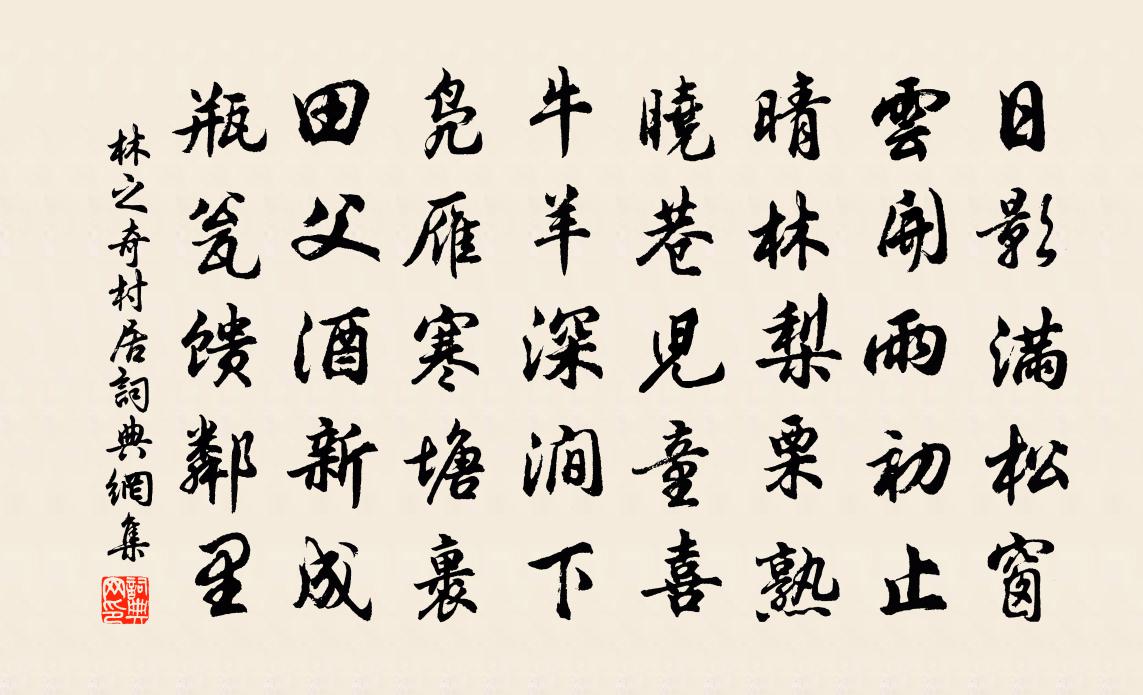 日影滿松窗
雲開雨初止
晴林梨栗熟
曉巷児童喜
牛羊深澗下
凫雁寒塘裏
田父酒新成
瓶瓮馈鄰里
林之奇村居詞典網集
詞典网印